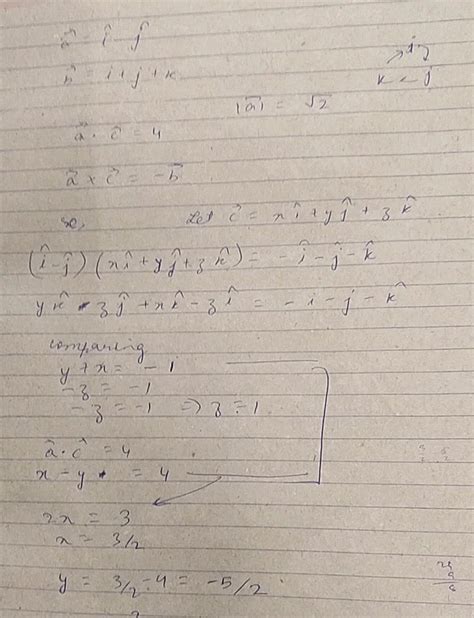 a⃗ = î - ĵ
b⃗ = i + j + k
i
k ← j
|a⃗| = √2
a⃗ · c⃗ = 4
a⃗ × c⃗ = -b⃗
so, Let c⃗ = xî + yĵ + zk̂
(î-ĵ) (xî + yĵ + zk̂) = -î - ĵ - k̂
yk̂ - zĵ + xk̂ - zî = - i - j - k̂
comparing
y + x = - 1
- z = -1
- z = -1 => z = 1
a⃗ · c⃗ = 4
x - y = 4
2x = 3
x = 3/2
y = 3/2 - 4 = -5/2